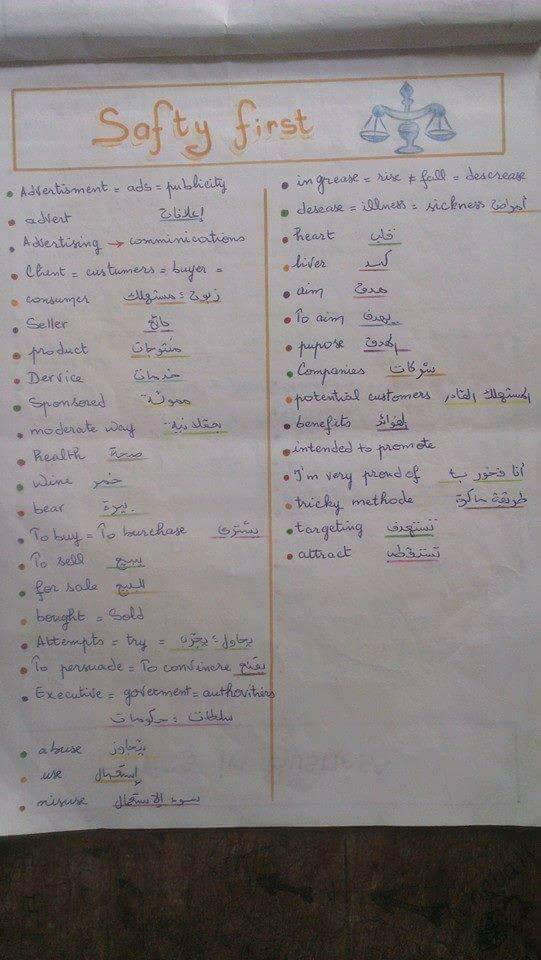 Safty first
Advertisment = ads = publicity
advert إعلانات
Advertising → comminications
Client = custumers = buyer =
consumer زبون = مستهلك
Seller بائع
product منتوجات
Dervice خدمات
Sponsored ممولة
moderate way بعقلانية
health صحة
wine خمر
bear بيرة
To buy = To burchase يشتري
To sell يبيع
for sale للبيع
bought = Sold
Attempts = try = يحاول = يجرب
To persuade = To convincre يقنع
Executive = goverment = authorities
سلطات = حكومات
abuse يتجاوز
use إستعمال
misuse سوء الإستعمال
ingrease = rise ≠ fall = descrease
desease = illness = sickness أمراض
heart قلب
liver كبد
aim هدف
To aim يهدف
pupose الهدف
Companies شركات
potential customers المستهلك القادر
benefits الفوائد
intended to promote
I'm very proud of أنا فخور بـ
tricky methode طريقة ماكرة
targeting تستهدف
attract تستقطب